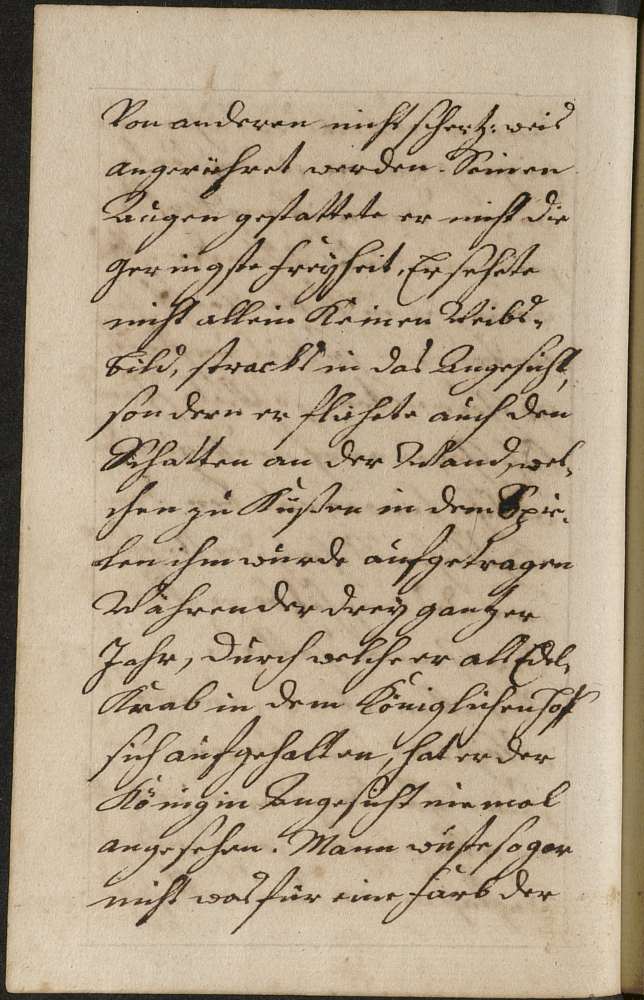 Von anderen nicht schertz-weis
angerühret werden. Seinen
Augen gestattete er nicht die
geringste Freyheit, Er sehete
nicht allein Keinen Weibs-
bild, strackhs in das Angesicht,
sondern er flichete auch den
Schatten an der Wand, wel-
chen zu Küssen in dem Spie-
len ihm wurde aufgetragen
Währender drey gantzer
Jahr, durch welche er als Edel-
Knab in dem Königlichen Hof
sich aufgehalten, hat er der
Königin Angesicht niemal
angesehen. Mann wuste sogar
nicht was für eine Farb der